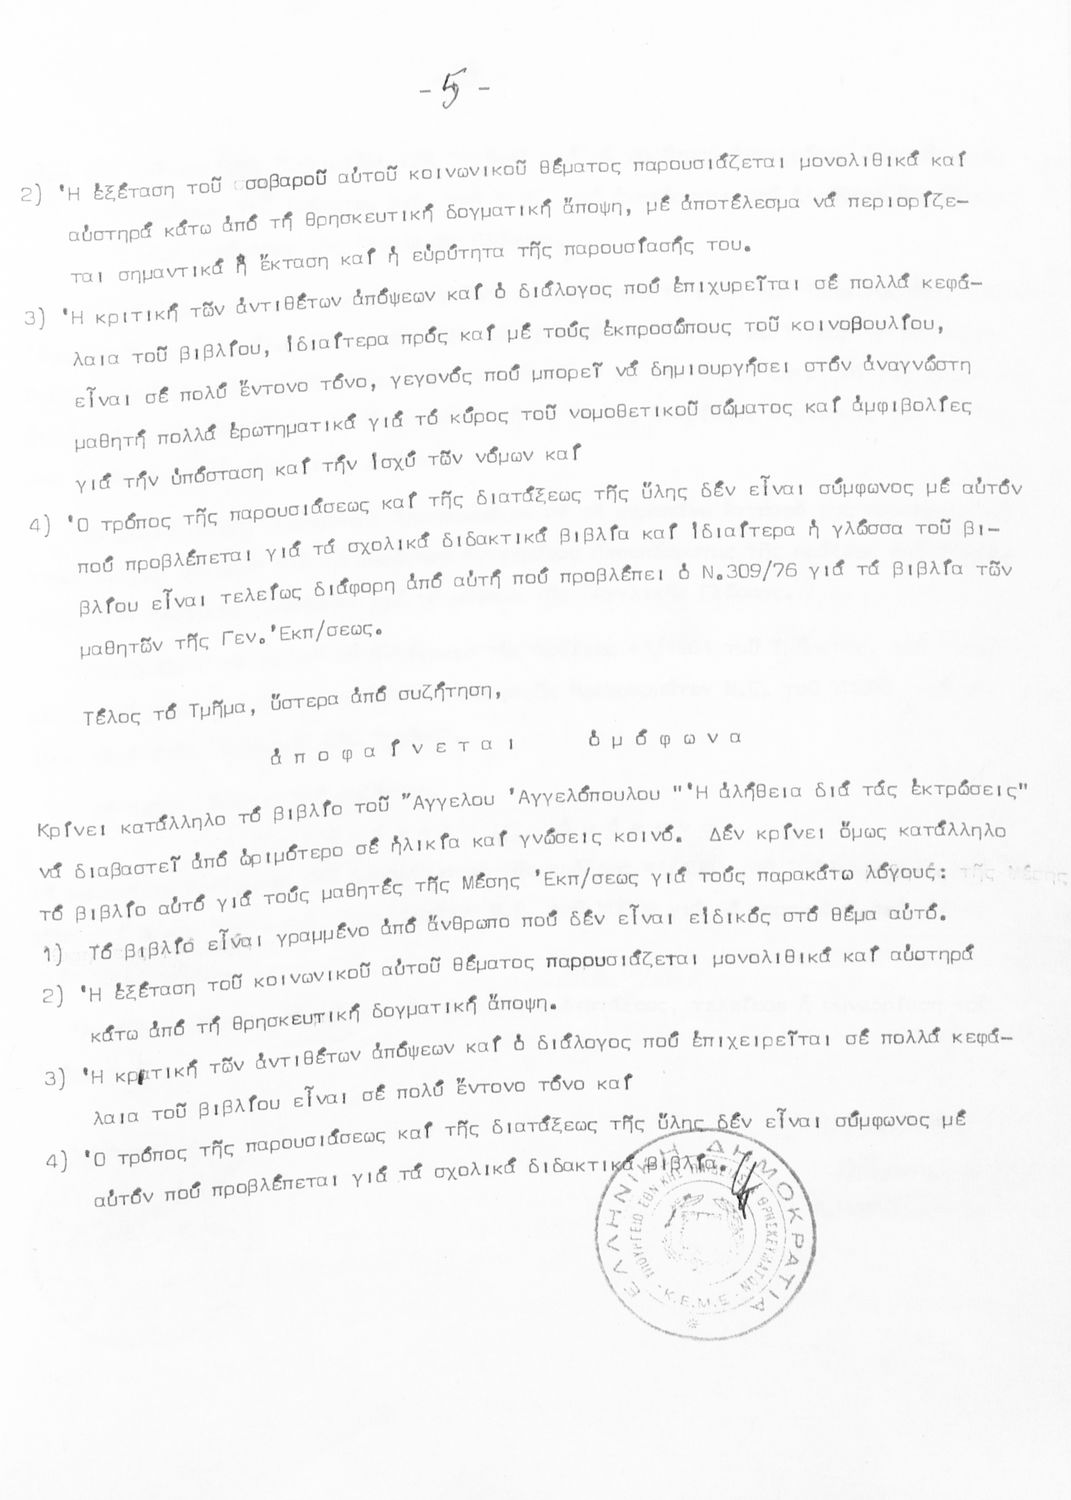 - 5 -
2) Ἡ ἐξέταση τοῦ σοβαροῦ αὐτοῦ κοινωνικοῦ θέματος παρουσιάζεται μονολιθικά καί
αὐστηρά κάτω ἀπό τή θρησκευτική δογματική ἄποψη, μέ ἀποτέλεσμα νά περιορίζε-
ται σημαντικά ἡ ἔκταση καί ἡ εὐρύτητα τῆς παρουσίασής του.
3) Ἡ κριτική τῶν ἀντιθέτων ἀπόψεων καί ὁ διάλογος πού ἐπιχυρεῖται σέ πολλά κεφά-
λαια τοῦ βιβλίου, ἰδιαίτερα πρός καί μέ τούς ἐκπροσώπους τοῦ κοινοβουλίου,
εἶναι σέ πολύ ἔντονο τόνο, γεγονός πού μπορεῖ νά δημιουργήσει στόν ἀναγνώστη
μαθητή πολλά ἐρωτηματικά γιά τό κύρος τοῦ νομοθετικοῦ σώματος καί ἀμφιβολίες
γιά τήν ὑπόσταση καί τήν ἰσχύ τῶν νόμων καί
4) Ὁ τρόπος τῆς παρουσιάσεως καί τῆς διατάξεως τῆς ὕλης δέν εἶναι σύμφωνος μέ αὐτόν
πού προβλέπεται γιά τά σχολικά διδακτικά βιβλία καί ἰδιαίτερα ἡ γλώσσα τοῦ βι-
βλίου εἶναι τελείως διάφορη ἀπό αὐτή πού προβλέπει ὁ Ν.309/76 γιά τά βιβλία τῶν
μαθητῶν τῆς Γεν. Ἐκπ/σεως.
Τέλος τό Τμῆμα, ὕστερα ἀπό συζήτηση,
ἀ π ο φ α ί ν ε τ α ι ὁ μ ό φ ω ν α
Κρίνει κατάλληλο τό βιβλίο τοῦ Ἄγγελου Ἀγγελόπουλου "Ἡ ἀλήθεια διά τάς ἐκτρώσεις"
νά διαβαστεῖ ἀπό ὡριμότερο σέ ἡλικία καί γνώσεις κοινό. Δέν κρίνει ὅμως κατάλληλο
τό βιβλίο αὐτό γιά τούς μαθητές τῆς Μέσης Ἐκπ/σεως γιά τούς παρακάτω λόγους:
1) Τό βιβλίο εἶναι γραμμένο ἀπό ἄνθρωπο πού δέν εἶναι εἰδικός στό θέμα αὐτό.
2) Ἡ ἐξέταση τοῦ κοινωνικοῦ αὐτοῦ θέματος παρουσιάζεται μονολιθικά καί αὐστηρά
κάτω ἀπό τή θρησκευτική δογματική ἄποψη.
3) Ἡ κριτική τῶν ἀντιθέτων ἀπόψεων καί ὁ διάλογος πού ἐπιχειρεῖται σέ πολλά κεφά-
λαια τοῦ βιβλίου εἶναι σέ πολύ ἔντονο τόνο καί
4) Ὁ τρόπος τῆς παρουσιάσεως καί τῆς διατάξεως τῆς ὕλης δέν εἶναι σύμφωνος μέ
αὐτόν πού προβλέπεται γιά τά σχολικά διδακτικά βιβλία.
ΕΛΛΗΝΙΚΗ ΔΗΜΟΚΡΑΤΙΑ
ΥΠΟΥΡΓΕΙΟ ΕΘΝΙΚΗΣ ΠΑΙΔΕΙΑΣ ΘΡΗΣΚΕΥΜΑΤΩΝ
Κ.Ε.Μ.Ε.